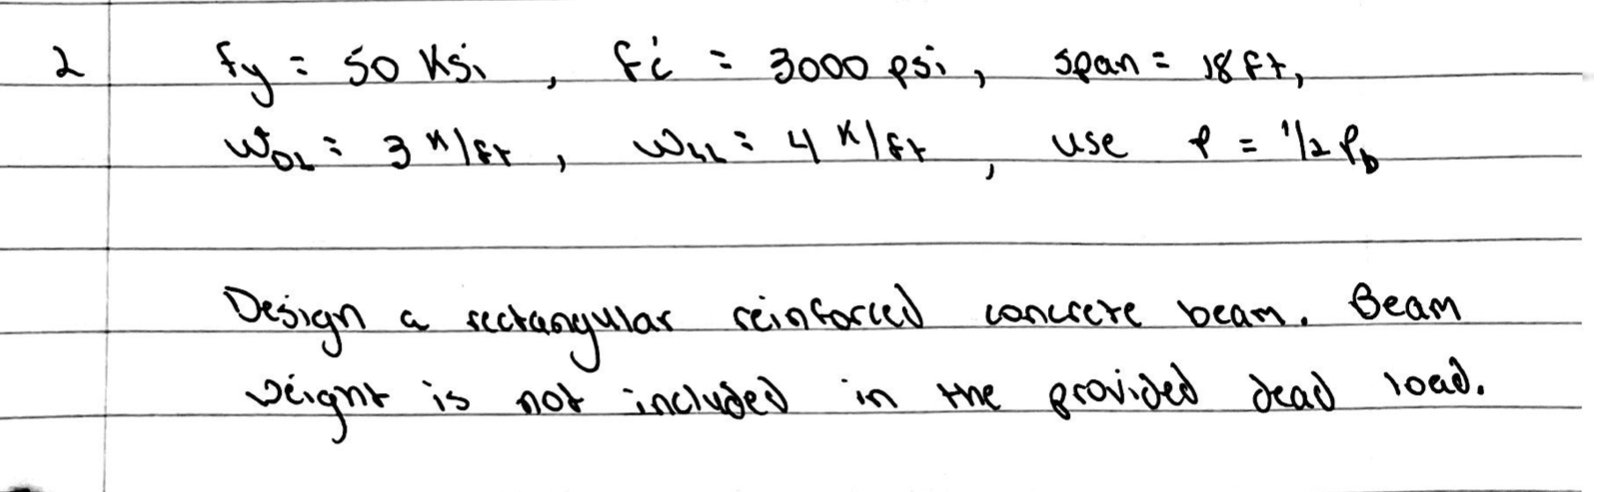 2 fy = 50 Ksi , fc' = 3000 psi, span = 18 ft,
WDL = 3 K/ft , WLL = 4 K/ft , use ρ = 1/2 ρb
Design a rectangular reinforced concrete beam. Beam
weight is not included in the provided dead load.